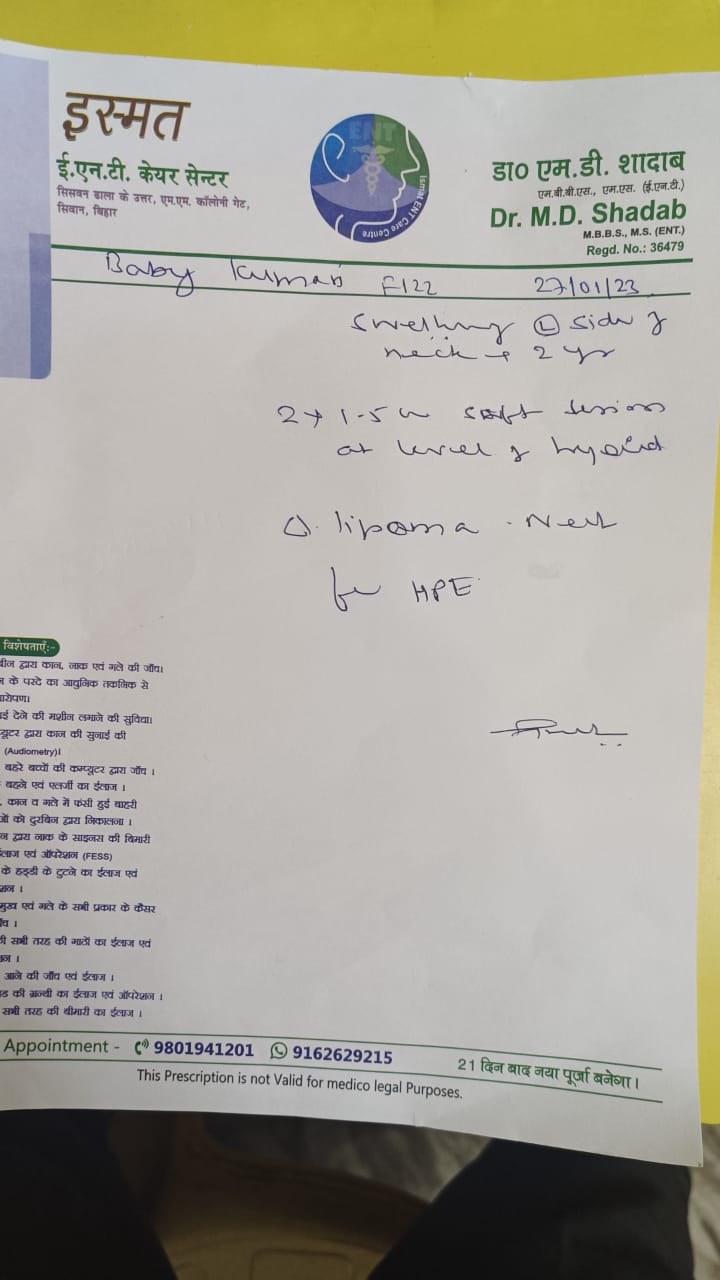 इस्मत
ई.एन.टी. केयर सेन्टर
सिसवन ढाला के उत्तर, एम.एम. कॉलोनी गेट,
सिवान, बिहार
ENT
Ismat ENT Care Centre
डा० एम.डी. शादाब
एम.बी.बी.एस., एम.एस. (ई.एन.टी.)
Dr. M.D. Shadab
M.B.B.S., M.S. (ENT.)
Regd. No.: 36479
Baby Kumari F/22 27/01/23
swelling (L) side of
neck 2 yr
2 x 1.5 soft lesion
at level of hyoid
lipoma Neck
for HPE
विशेषताएँ:-
बीन द्वारा कान, नाक एवं गले की जाँच।
के परदे का आधुनिक तकनिक से
रोपण।
ई देने की मशीन लगाने की सुविधा।
प्यूटर द्वारा कान की सुनाई की
(Audiometry)।
बहरे बच्चों की कम्प्यूटर द्वारा जाँच ।
बहने एवं एलर्जी का ईलाज ।
, कान व गले में फंसी हुई बाहरी
ओं को दुरबिन द्वारा निकालना ।
न द्वारा नाक के साइनस की बिमारी
लाज एवं ऑपरेशन (FESS)
के हड्डी के टुटने का ईलाज एवं
शन ।
मुख एवं गले के सभी प्रकार के कैंसर
ाँच ।
ी सभी तरह की गाठों का ईलाज एवं
शन ।
आने की जाँच एवं ईलाज ।
ड की ग्रन्थी का ईलाज एवं ऑपरेशन ।
सभी तरह की बीमारी का ईलाज ।
Appointment - 9801941201 9162629215
21 दिन बाद नया पूर्जा बनेगा।
This Prescription is not Valid for medico legal Purposes.